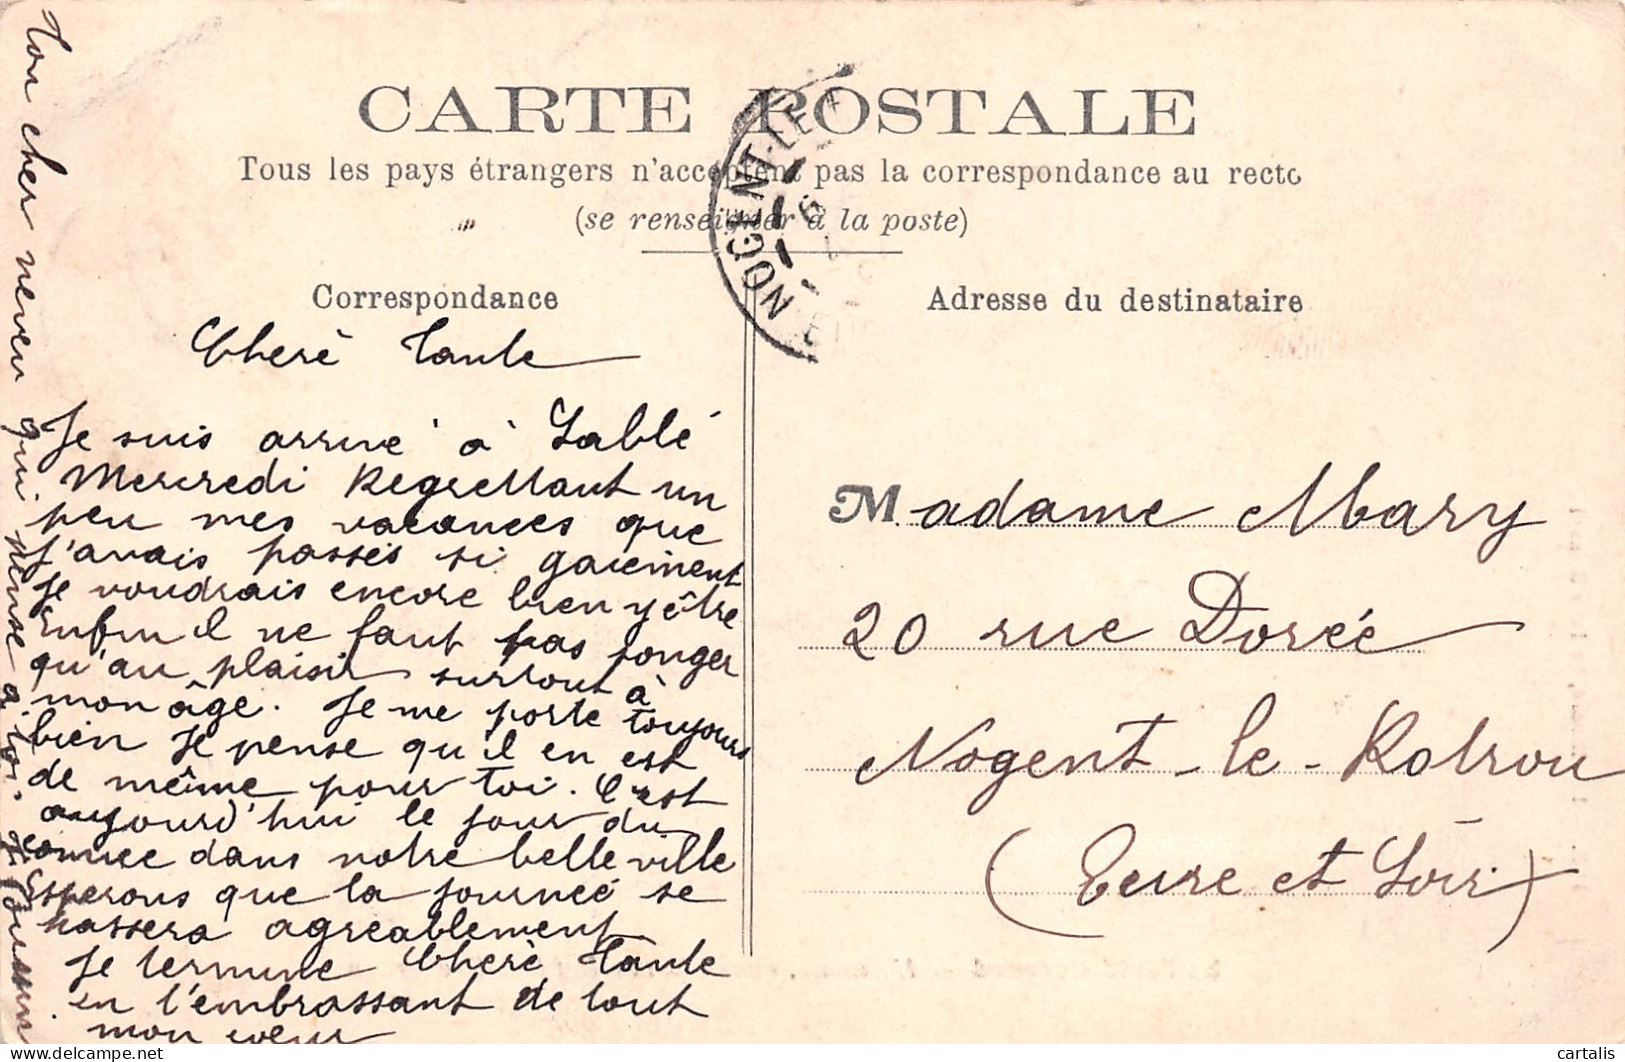 CARTE POSTALE
Tous les pays étrangers n'acceptent pas la correspondance au recto
(se renseigner à la poste)
NOGENT-LE-
Correspondance
Adresse du destinataire
Cherè Tante
Je suis arrivé à Sablé
Mercredi Regrettant un
peu mes vacances que
j'avais passés si gaiement
je voudrais encore bien y être
Enfin il ne faut pas songer
qu'au plaisir surtout à
mon âge. Je me porte toujours
bien Je pense qu'il en est
de même pour toi. C'est
aujourd'hui le jour du
comice dans notre belle ville
Esperons que la journeé se
passera agreablement
Je termine Cherè Tante
en t'embrassant de tout
mon coeur
Ton cher neveu qui pense à toi.
Madame Mary
20 rue Dorée
Nogent-le-Rotrou
(Eure et Loir)
cartalis
delcampe.net